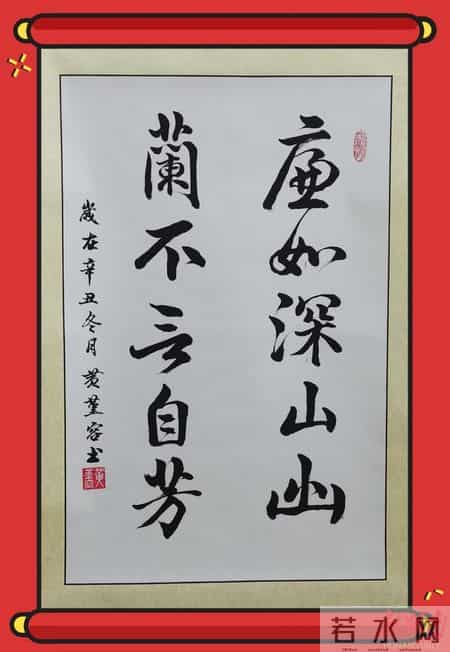 廉如深山幽
蘭不言自芳
歲在辛丑冬月黄堇容书
若水网